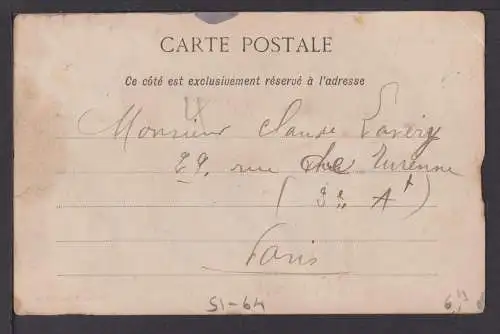 CARTE POSTALE
Ce côté est exclusivement réservé à l'adresse
Monsieur Claude
29, rue de Turenne
(3e At
Paris
51-64